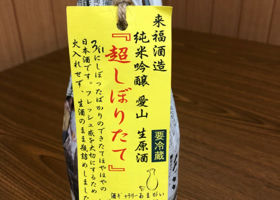 来福酒造
純米吟醸 愛山 生原酒
要冷蔵
『超しぼりたて』
にしぼったばかりのできたてほやほやの
日本酒です。フレッシュ感を大切にするため
火入れせず、生酒のまま瓶詰めしました